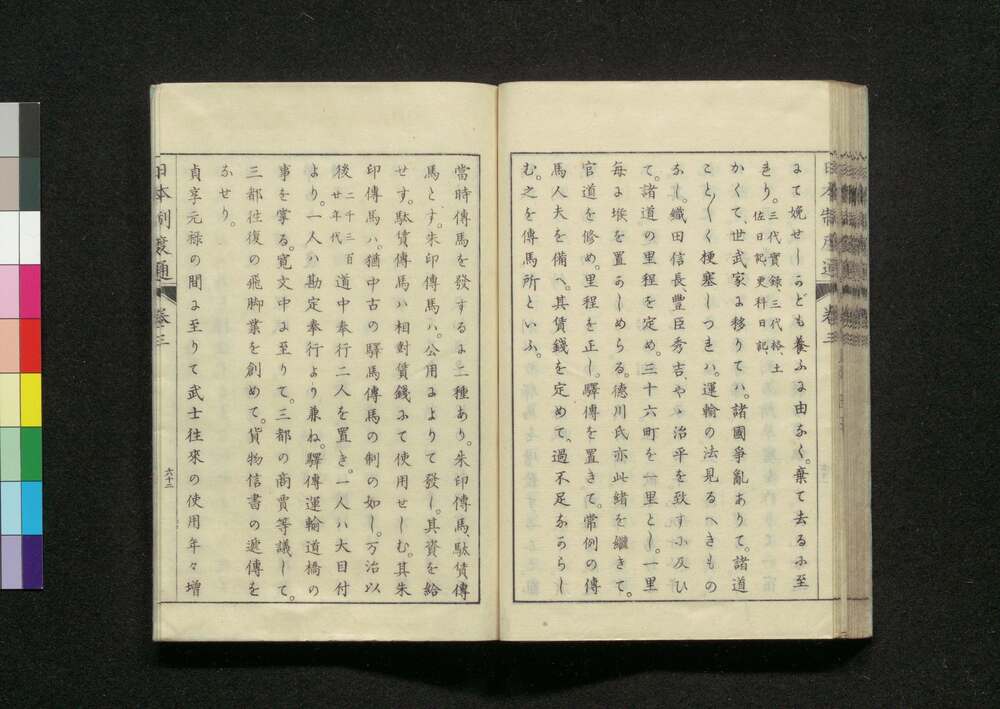 日本制度通 卷三
にて娩せしかども養ふに由なく。棄て去るに至
れり。三代實録、三代格、土
佐日記、更科日記、
かくて、世武家に移りてハ。諸國爭亂ありて。諸道
ことごとく梗塞しつれハ。運輸の法見るへきもの
なし。織田信長、豊臣秀吉、やゝ治平を致すに及ひ
て。諸道の里程を定め。三十六町を一里とし。一里
毎に堠を置かしめらる。德川氏亦此緒を繼きて。
官道を修め。里程を正し。驛傳を置きて。常例の傳
馬人夫を備へ。其賃錢を定めて、過不足なからし
む。之を傳馬所といふ。
當時傳馬を發するに。二種あり。朱印傳馬、駄賃傳
馬とす。朱印傳馬ハ。公用によりて發し。其資を給
せす。駄賃傳馬ハ相對賃錢にて使用せしむ。其朱
印傳馬ハ。猶中古の驛馬傳馬の制の如し。万治以
後 二千三百
廿年代 道中奉行二人を置き。一人ハ大目付
より。一人ハ勘定奉行より兼ね。驛傳運輸道橋の
事を掌る。寛文中に至りて。三都の商賈等議して。
三都往復の飛脚業を創めて。貨物信書の遞傳を
なせり。
貞享元禄の間に至りて武士往來の使用年々增
日本制度通 卷三
六十二